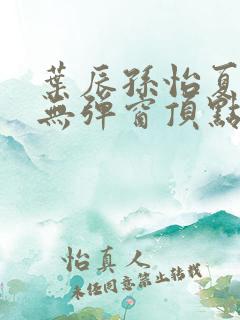 葉辰孫怡夏
無彈窗頂點
怡真人
未經同意禁止轉載